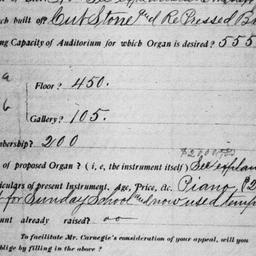 ch built of? Cut Stone and Re Pressed B
ng Capacity of Auditorium for which Organ is desired? 555
a Floor? 450.
b Gallery? 105.
mbership? 200
of proposed Organ? ( i, e, the instrument itself) See explan
iculars of present Instrument, Age, Price, &c. Piano, $2
for Sunday School and now used
unt already raised? 00
To facilitate Mr. Carnegie's consideration of your appeal, will you
blige by filling in the above?